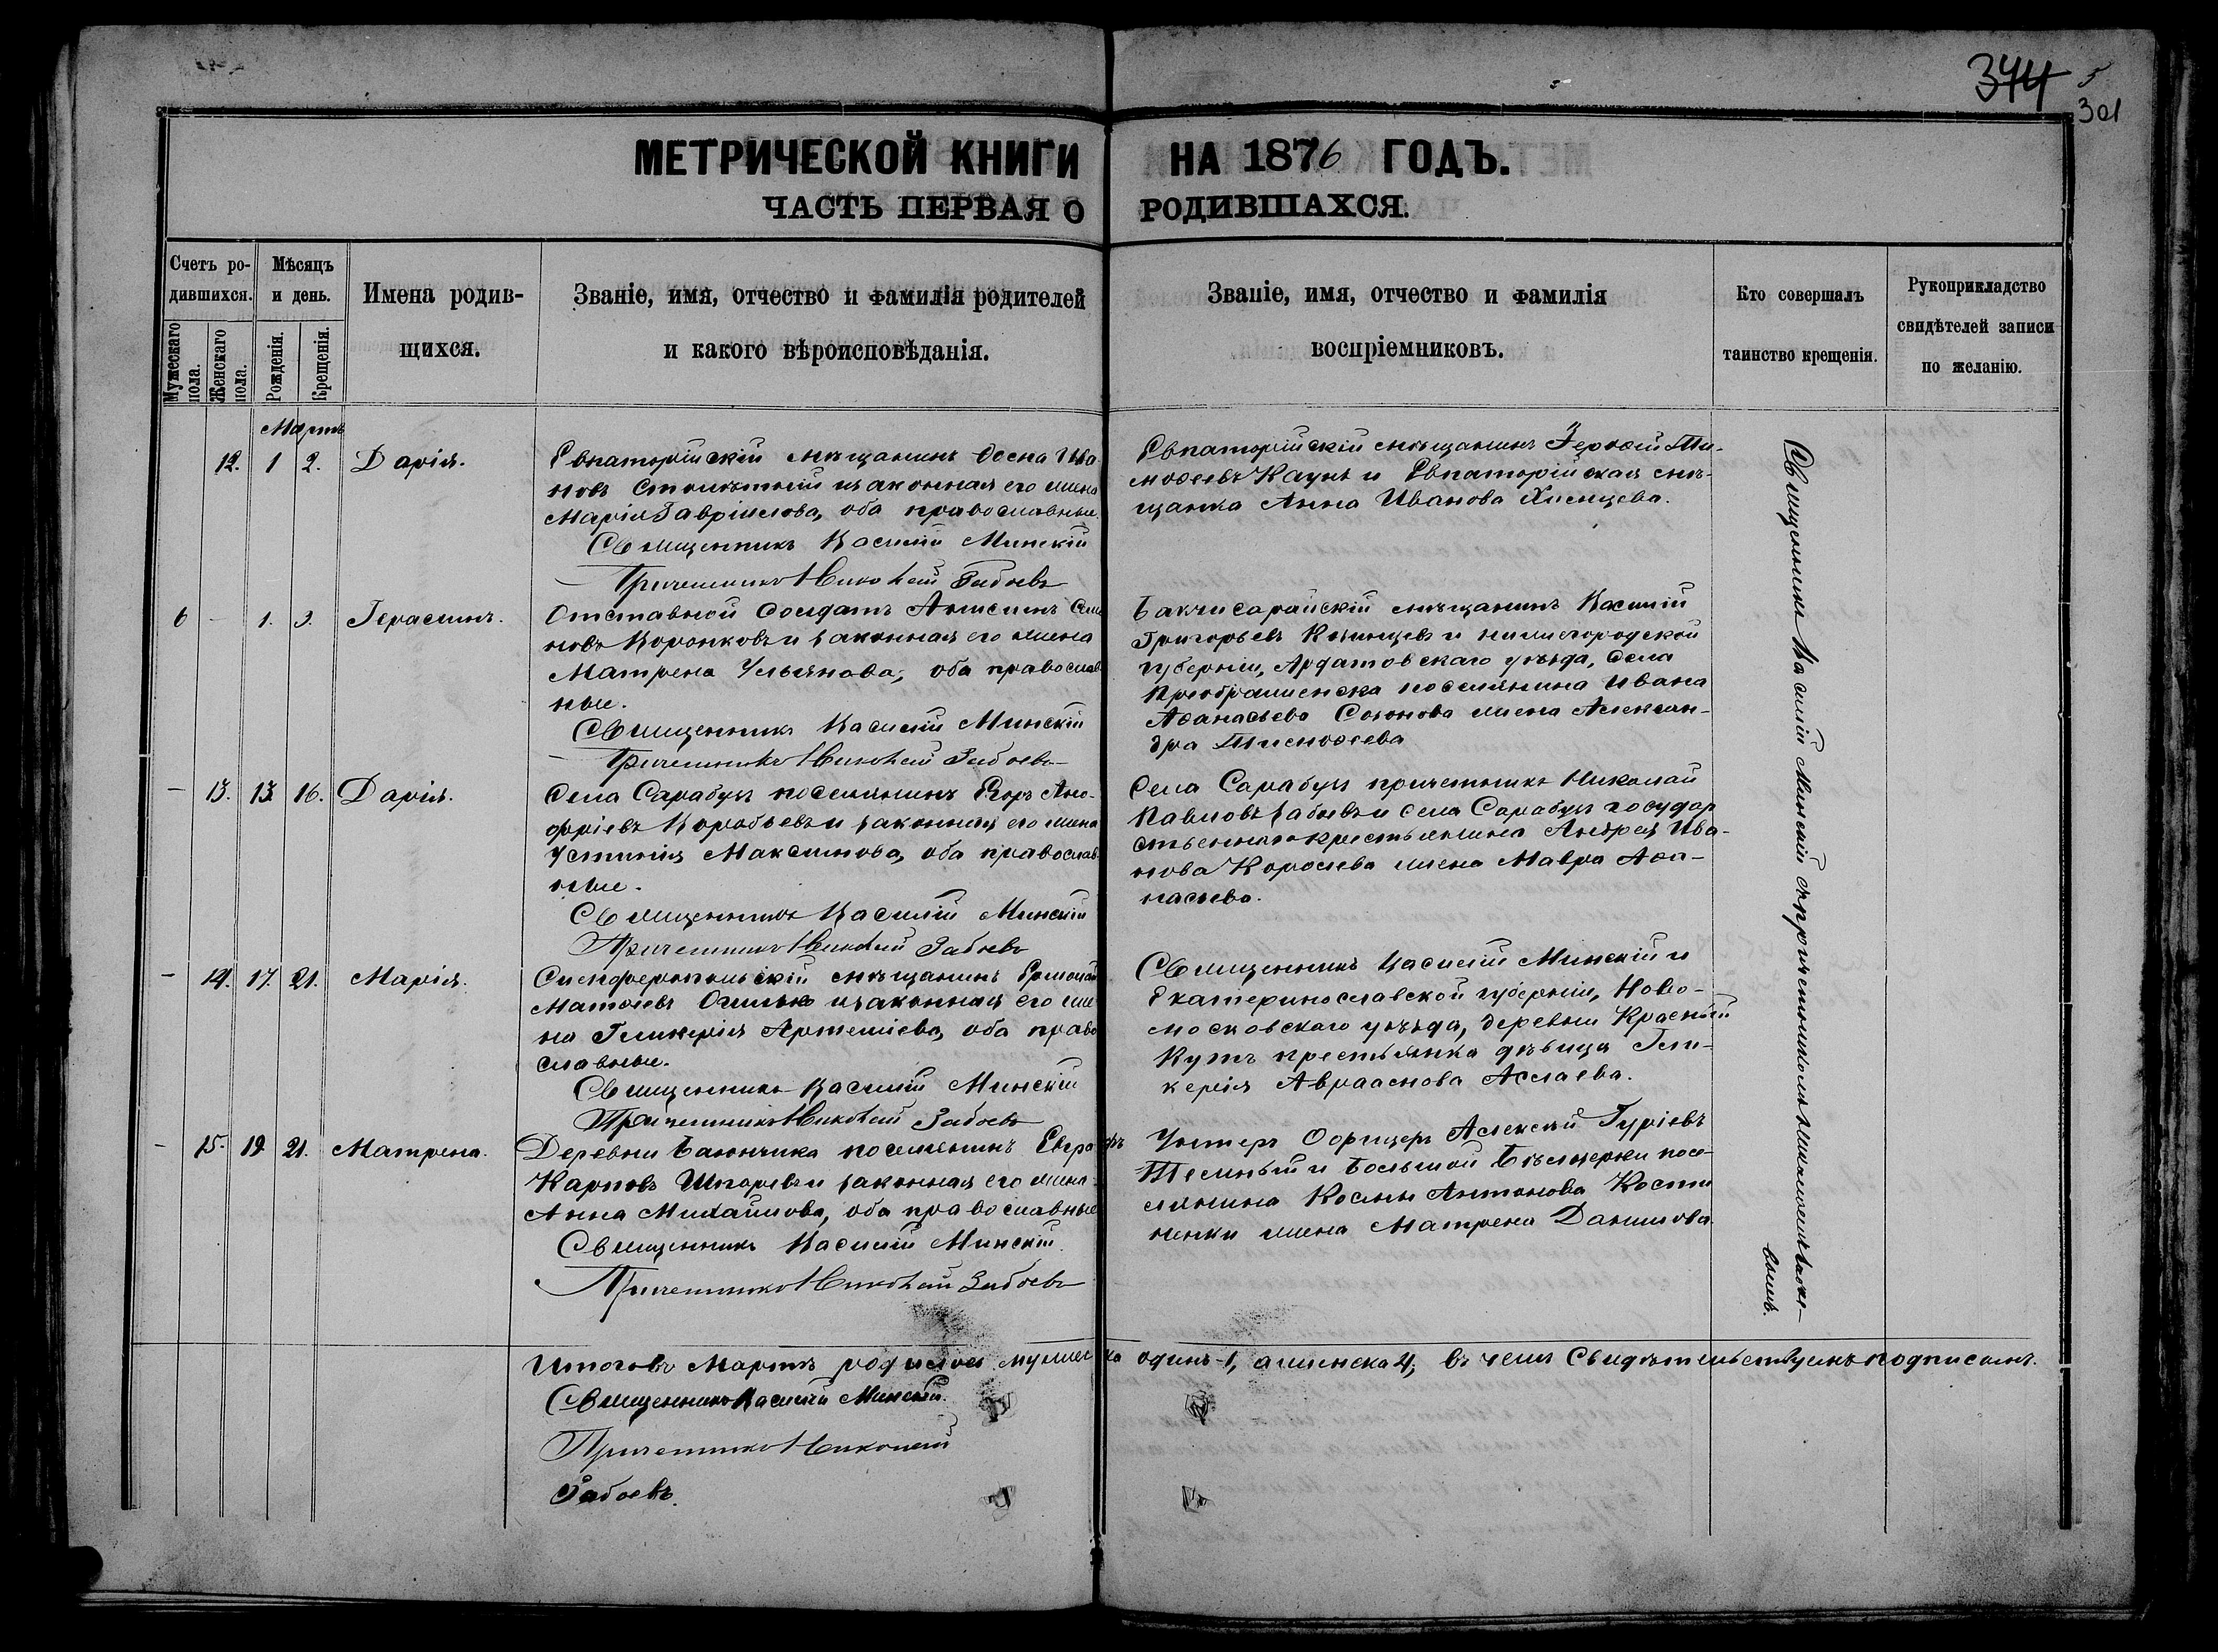 374 5
301
МЕТРИЧЕСКОЙ КНИГИ НА 1876 ГОДЪ.
ЧАСТЬ ПЕРВАЯ О РОДИВШАХСЯ.
Счетъ ро-
дившихся.
Мужескаго пола.
Женскаго пола.
Мѣсяцъ
и день.
Рожденія.
Крещенія.
Имена родив-
шихся.
Званіе, имя, отчество и фамилія родителей
и какого вѣроисповѣданія.
Званіе, имя, отчество и фамилія
воспріемниковъ.
Кто совершалъ
таинство крещенія.
Рукоприкладство
свидѣтелей записи
по желанію.
Мартъ
12. 1 2. Дарія.
Евпаторійскій мѣщанинъ Ѳома Ива
новъ Столѣтній и законная его жена
Марія Гавріилова, оба православные.
Священникъ Василій Минскій
Причетникъ Николай Забоевъ
Евпаторійскій мѣщанинъ Ти-
моѳеевъ Каунъ и Евпаторійская мѣ-
щанка Анна Иванова
6 - 1. 3. Герасимъ.
Отставной солдатъ Анисимъ Сем
новъ Воронковъ и законная его жена
Матрена Ульянова, оба православ
ные.
Священникъ Василій Минскій
Причетникъ Николай Забоевъ
Бакчисарайскій мѣщанинъ Василій
Григорьевъ и нижегородской
губерніи, Ардатовскаго уѣзда, села
Преображенска поселянина Ивана
Аѳанасьева жена Алексан-
дра Тимоѳеева
- 13. 13. 16. Дарія.
Села Сарабузъ поселянинъ Егоръ Ано-
фріевъ Воробьевъ и законная его жена
Устинія Максимова, оба православ
ные.
Священникъ Василій Минскій
Причетникъ Николай Забоевъ
Села Сарабузъ причетникъ Николай
Павловъ Забоевъ и села Сарабузъ государ
ственнаго крестьянина Андрея Ива-
нова Королева жена Мавра Аѳа-
насьева.
- 14. 17. 21. Марія.
Симферопольскій мѣщанинъ Ермолай
Матѳеевъ и законная его же
на Гликерія Артеміева, оба право
славные.
Священникъ Василій Минскій
Причетникъ Николай Забоевъ
Священникъ Василій Минскій и
Екатеринославской губерніи, Ново-
московскаго уѣзда, деревни Красный
Кутъ крестьянка дѣвица Гли-
керія Авраамова
- 15. 19. 21. Матрена.
Деревни поселянинъ Евграфъ
Карповъ и законная его жена
Анна Михайлова, оба православные
Священникъ Василій Минскій
Причетникъ Николай Забоевъ
Унтеръ Офицеръ Алексѣй Гуріевъ
Темный и Большой Бѣлозерки посе-
лянина Космы Антонова Кости
ненки жена Матрена Данилова
Священникъ Василій Минскій съ причетникомъ Николаемъ Забое-
вымъ.
Итого въ Мартѣ родилось мужеска одинъ 1, а женска 4, въ чемъ свидѣтельствуемъ подписомъ.
Священникъ Василій Минскій.
Причетникъ Николай
Забоевъ.